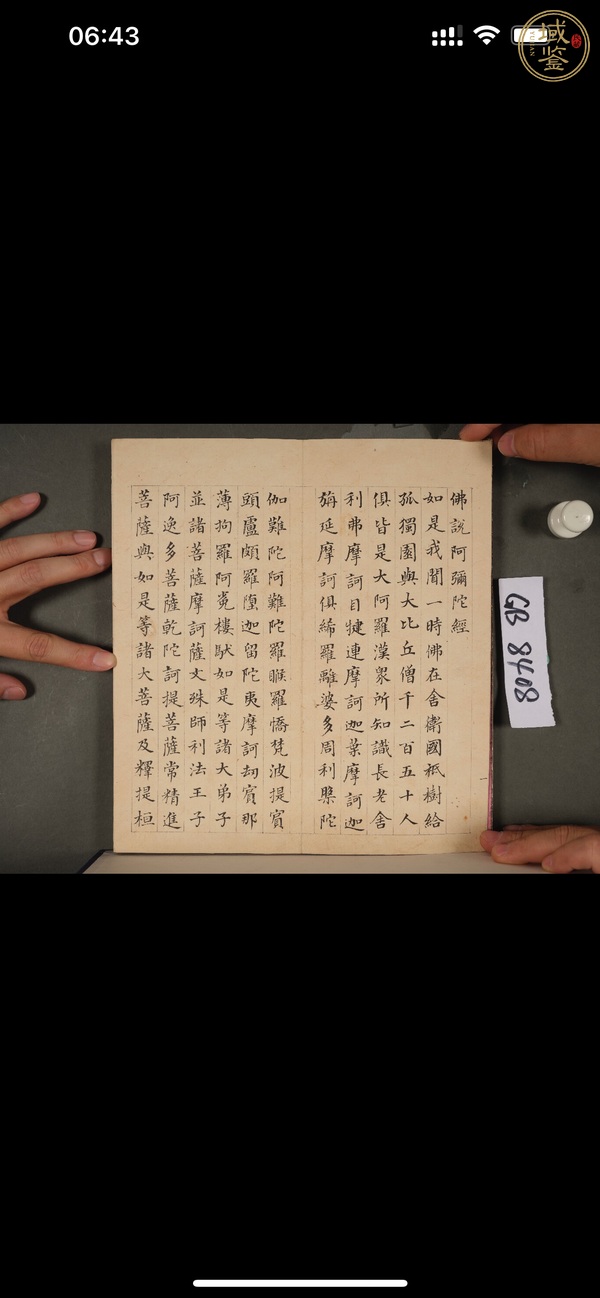 06:43
域鉴
GB 8408
佛說阿彌陀經
如是我聞一時佛在舍衛國祇樹給
孤獨園與大比丘僧千二百五十人
俱皆是大阿羅漢眾所知識長老舍
利弗摩訶目犍連摩訶迦葉摩訶迦
旃延摩訶俱絺羅離婆多周利槃陀
伽難陀阿難陀羅睺羅憍梵波提賓
頭盧頗羅墮迦留陀夷摩訶劫賓那
薄拘羅阿㝹樓馱如是等諸大弟子
並諸菩薩摩訶薩文殊師利法王子
阿逸多菩薩乾陀訶提菩薩常精進
菩薩與如是等諸大菩薩及釋提桓